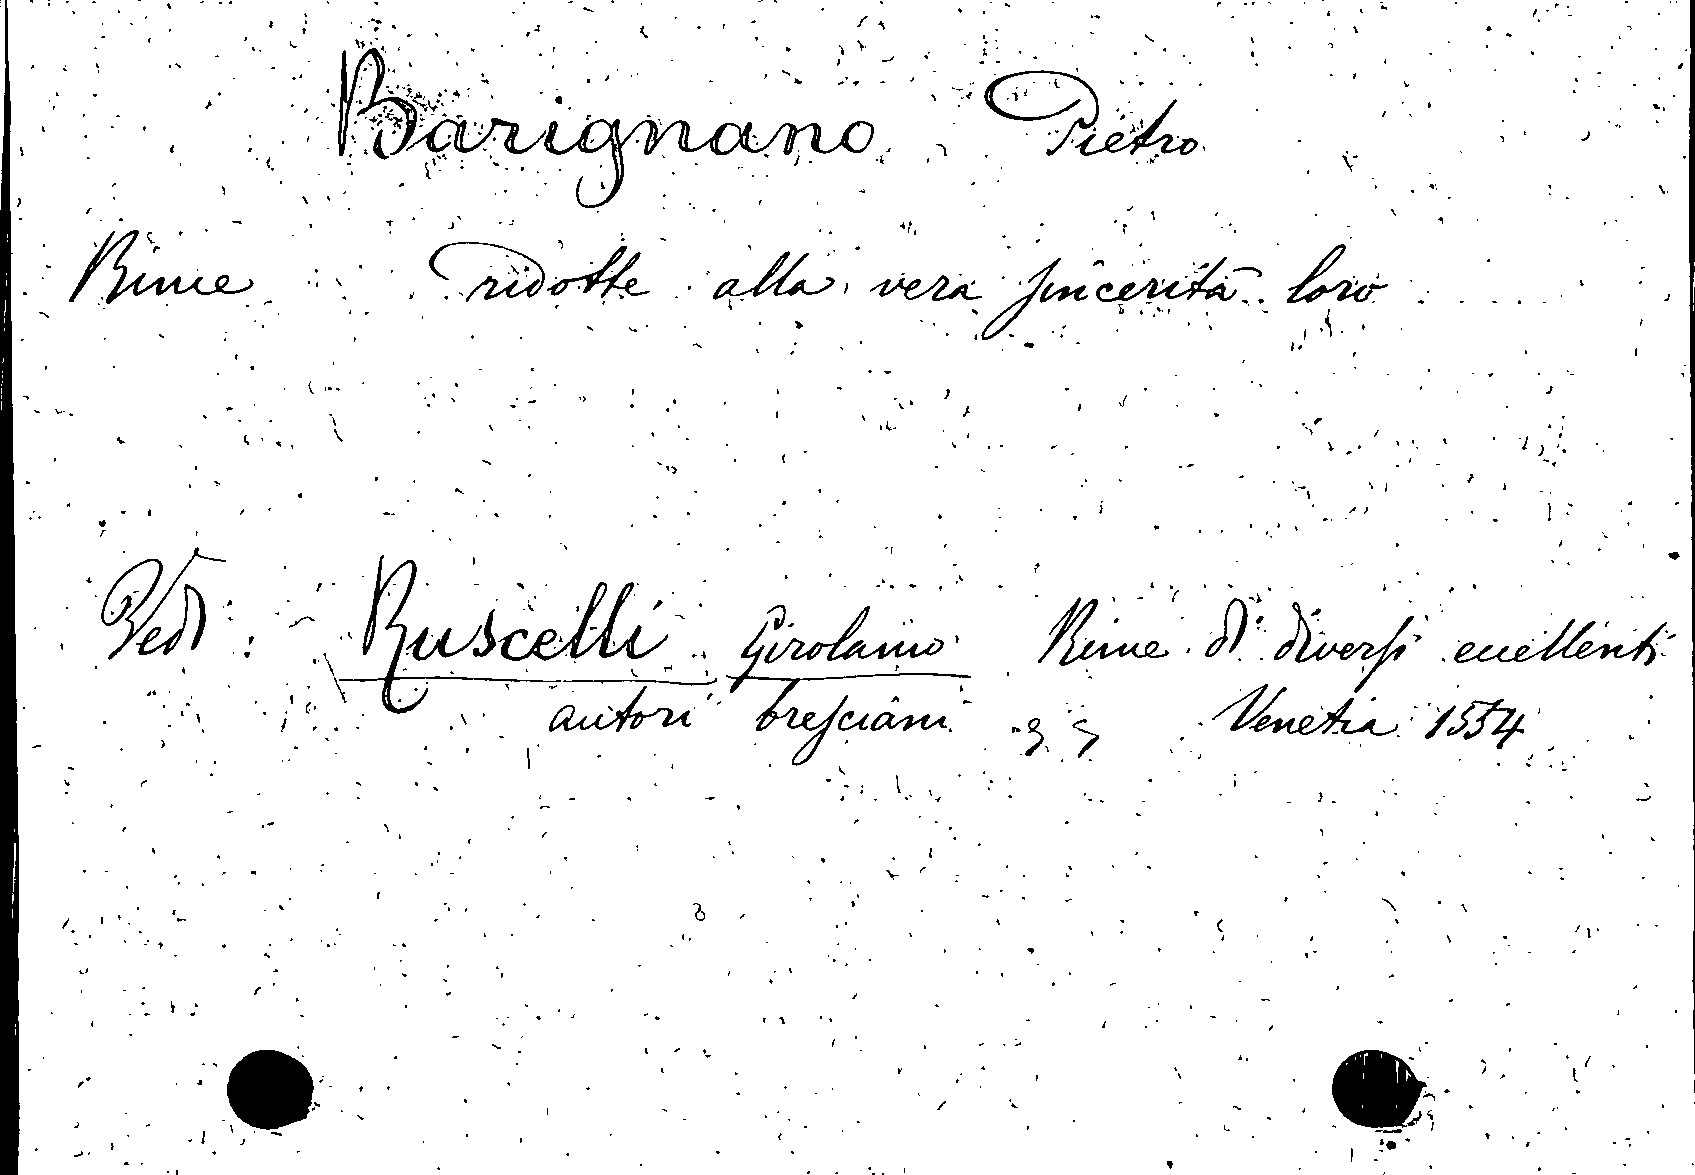 Barignano Pietro
Rime ridotte alla vera sincerità loro
Vedi: Ruscelli Girolamo Rime di diversi eccellenti
autori bresciani Venetia 1554